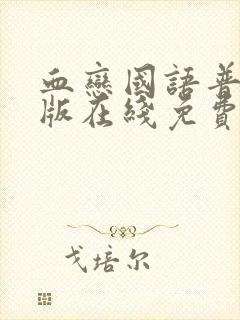 血戀國語普
版在綫免費
戈培尔